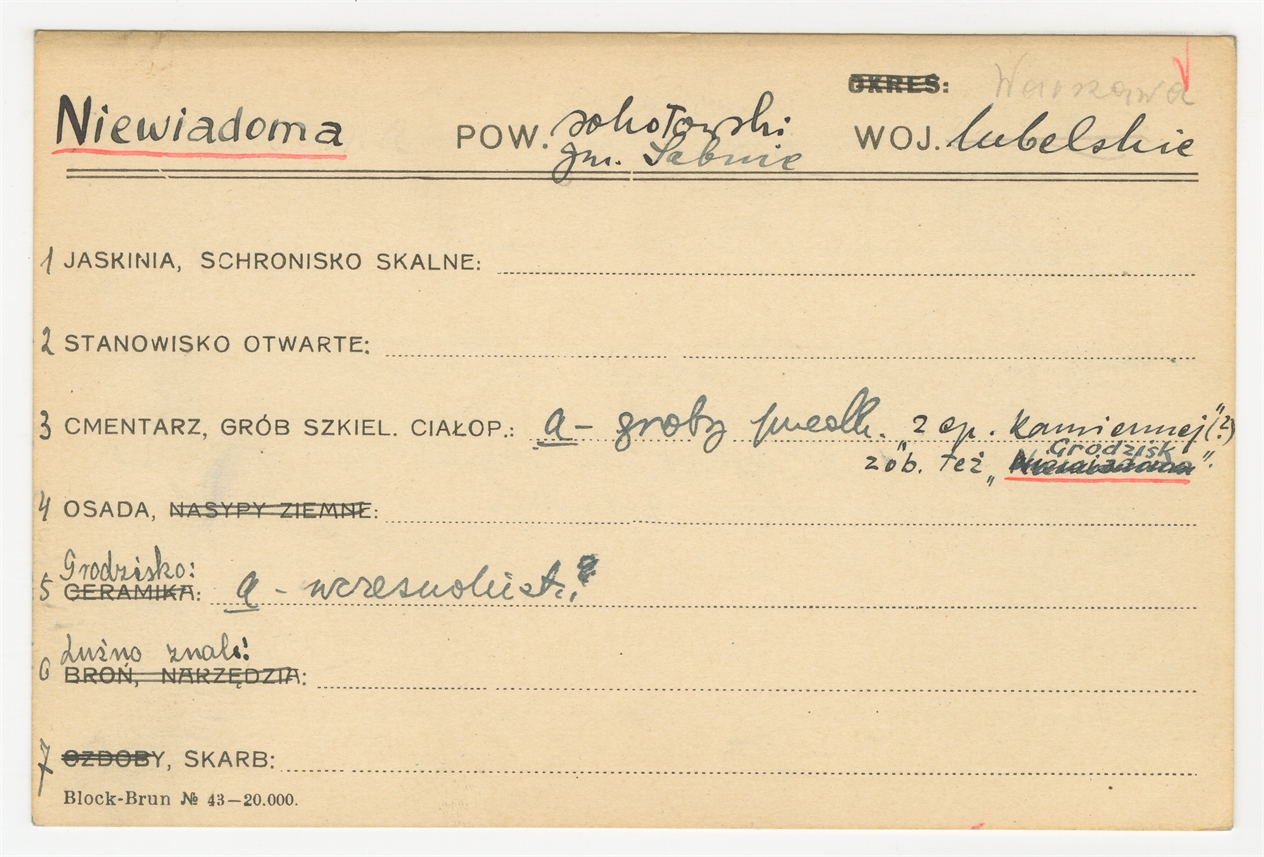 OKRES: Warszawa
Niewiadoma POW. sokołowski WOJ. lubelskie
gm. Sabnie
1 JASKINIA, SCHRONISKO SKALNE:
2 STANOWISKO OTWARTE:
3 CMENTARZ, GRÓB SZKIEL. CIAŁOP.: a - groby "z ep. kamiennej" (?)
Grodzisk
zob. też „Niewiadoma".
4 OSADA, NASYPY ZIEMNE:
Grodzisko:
5 CERAMIKA: a - wczesnohist.?
Luźno znal.:
6 BROŃ, NARZĘDZIA:
7 OZDOBY, SKARB:
Block-Brun № 43—20.000.